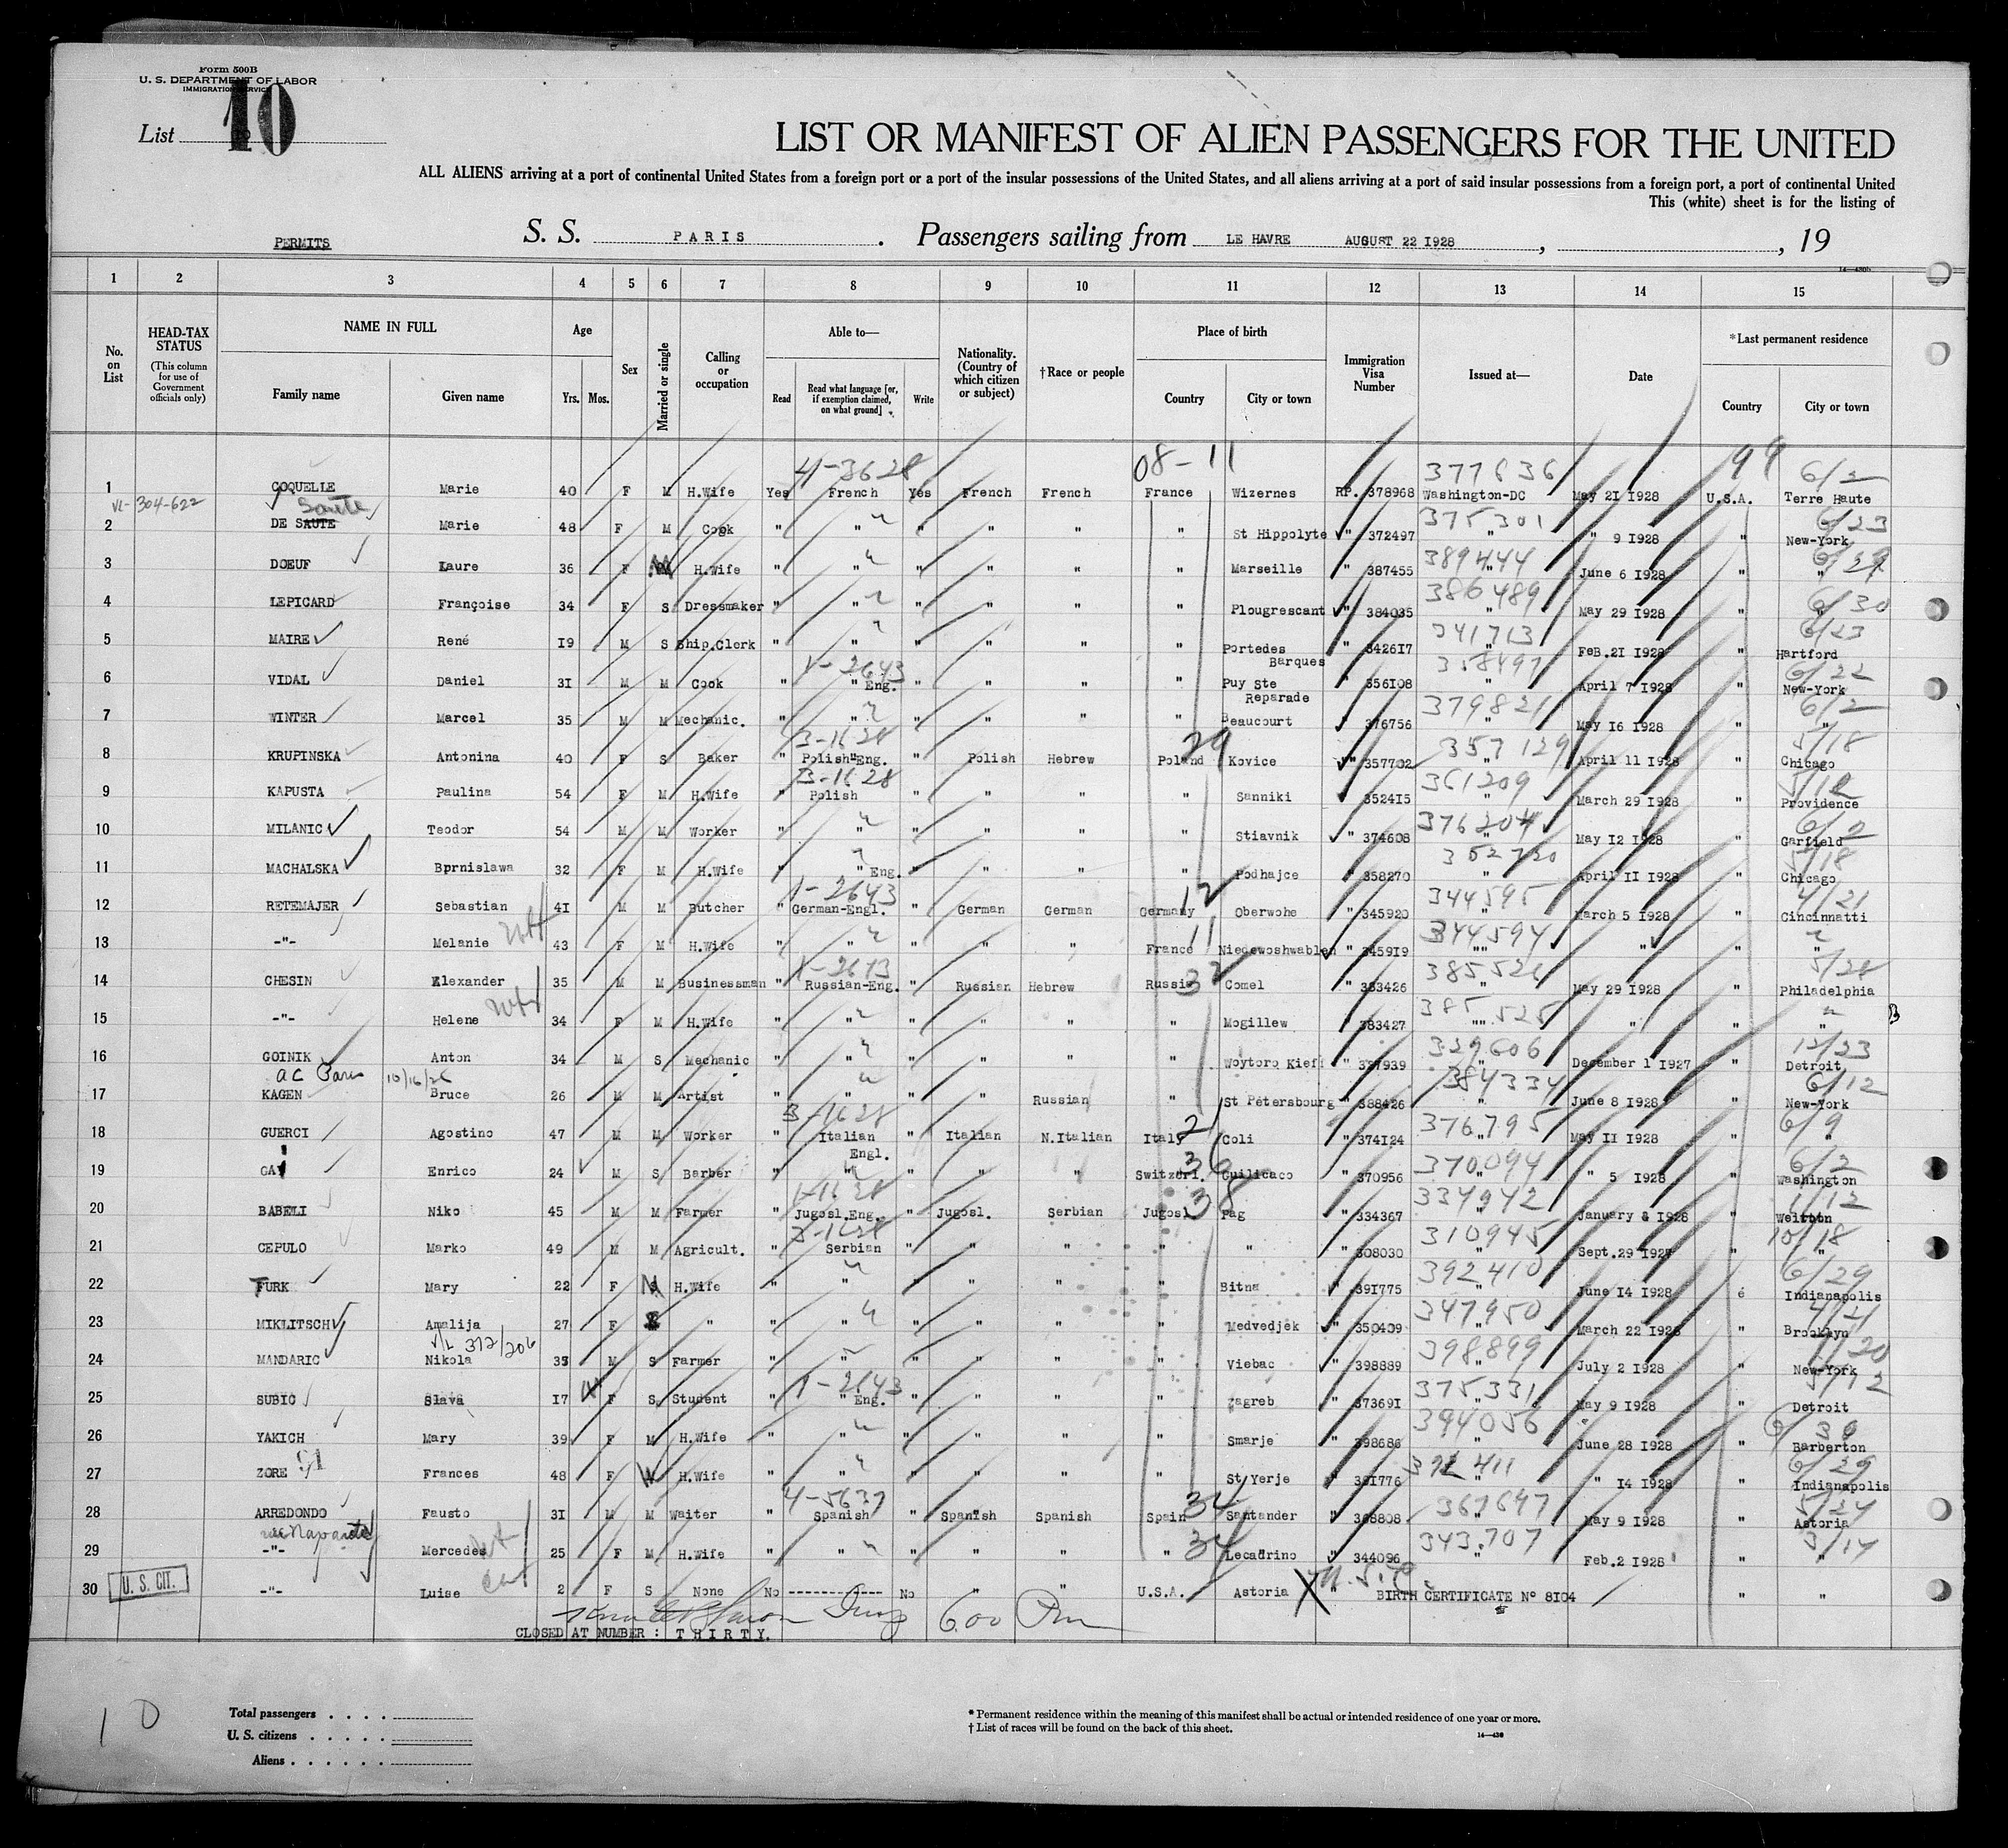 Form 500B
U. S. DEPARTMENT OF LABOR
IMMIGRATION SERVICE
List 10
LIST OR MANIFEST OF ALIEN PASSENGERS FOR THE UNITED
ALL ALIENS arriving at a port of continental United States from a foreign port or a port of the insular possessions of the United States, and all aliens arriving at a port of said insular possessions from a foreign port, a port of continental United
This (white) sheet is for the listing of
PERMITS S. S. PARIS . Passengers sailing from LE HAVRE AUGUST 22 1928 , , 19
14—430b
1 2 3 4 5 6 7 8 9 10 11 12 13 14 15
No. on List HEAD-TAX STATUS (This column for use of Government officials only) NAME IN FULL Family name Given name Age Yrs. Mos. Sex Married or single Calling or occupation Able to— Read Read what language [or, if exemption claimed, on what ground] Write Nationality. (Country of which citizen or subject) †Race or people Place of birth Country City or town Immigration Visa Number Issued at— Date *Last permanent residence Country City or town
4-3628 08-11 377636 99 6/2
1 COQUELLE Marie 40 F M H.Wife Yes French Yes French French France Wizernes RP. 378968 Washington-DC May 21 1928 U.S.A. Terre Haute
VL-304-622 Saute 375301 6/23
2 DE SAUTE Marie 48 F M Cook " " " " " " St Hippolyte " 372497 " " 9 1928 " New-York
389444 6/29
3 DOEUF Laure 36 F H.Wife " " " " " " Marseille " 387455 " June 6 1928 " "
386489 6/30
4 LEPICARD Françoise 34 F S Dressmaker " " " " " " Plougrescant " 384035 " May 29 1928 " "
341713 6/23
5 MAIRE René 19 M S Ship.Clerk " " " " " " Portedes Barques " 342617 " FeB.21 1928 " Hartford
1-2643 358497 6/22
6 VIDAL Daniel 31 M M Cook " " Eng. " " " " Puy Ste Reparade " 356108 " April 7 1928 " New-York
379821 6/2
7 WINTER Marcel 35 M M Mechanic. " " " " " " Beaucourt " 376756 " May 16 1928 " "
3-1628 29 357129 5/18
8 KRUPINSKA Antonina 40 F S Baker " Polish"Eng. " Polish Hebrew Poland Kovice " 357702 " April 11 1928 " Chicago
3-1628 361209
9 KAPUSTA Paulina 54 F M H.Wife " Polish " " " " Sanniki " 352415 " March 29 1928 " Providence
376204 6/2
10 MILANIC Teodor 54 M M Worker " " " " " " Stiavnik " 374608 " May 12 1928 " Garfield
352720 5/18
11 MACHALSKA Bprnislawa 32 F M H.Wife " " Eng. " " " " Podhajce " 358270 " April II 1928 " Chicago
1-2643 12 344595 4/21
12 RETEMAJER Sebastian 41 M M Butcher " German-Engl. " German German Germany Oberwohe " 345920 " March 5 1928 " Cincinnatti
11 344594
13 -"- Melanie 43 F M H.Wife " " " " " France Niedewoshwablen " 345919 "" " " "
32 385526 5/28
14 CHESIN Alexander 35 M M Businessman " Russian-Eng. " Russian Hebrew Russia Comel " 383426 " May 29 1928 " Philadelphia
385525
15 -"- Helene 34 F M H.Wife " " " " " " Mogillew " 383427 "" " " "
329606 12/23
16 GOINIK Anton 34 M S Mechanic " " " " " " Woytoro Kieff " 327939 " December 1 1927 " Detroit
ac Paris 10/16/28 384334 6/12
17 KAGEN Bruce 26 M M Artist " " " " Russian " St Pétersbourg " 388426 " June 8 1928 " New-York
3-1628 21 376795 6/9
18 GUERCI Agostino 47 M M Worker " Italian Engl. " Italian N.Italian Italy Coli " 374124 " May II 1928 " "
370094 6/2
19 GAY Enrico 24 M S Barber " " " " " Switzerl. Cuilicaco " 370956 " " 5 1928 " Washington
1-1628 38 334942 1/12
20 BABELI Niko 45 M M Farmer " Jugosl.Eng. " Jugosl. Serbian Jugosl Pag " 334367 " January 8 1928 " Weirton
3-1628 310945 10/18
21 CEPULO Marko 49 M M Agricult. " Serbian " " " " " " 308030 " Sept.29 1927 " "
392410 6/29
22 FURK Mary 22 F H.Wife " " " " " " Bitna " 391775 " June 14 1928 é Indianapolis
347950 4/21
23 MIKLITSCH Amalija 27 F " " " " " " " Medvedjek " 350409 " March 22 1928 " Brooklyn
V/L 312/206 398899 7/20
24 MANDARIC Nikola 35 M S Farmer " " " " " " Viebac " 398889 " July 2 1928 " New-York
1-2643 375331 5/12
25 SUBIC Slava 17 F S Student " " Eng. " " " " Zagreb " 373691 " May 9 1928 " Detroit
394056 6/30
26 YAKICH Mary 39 F M H.Wife " " " " " " Smarje " 398686 " June 28 1928 " Barberton
392411 6/29
27 ZORE Frances 48 F H.Wife " " " " " " St Yerje " 391776 " " 14 1928 " Indianapolis
4-5637 34 367647 5/24
28 ARREDONDO Fausto 31 M M Waiter " Spanish " Spanish Spanish Spain Santander " 368808 " May 9 1928 " Astoria
34 343707 3/17
29 -"- Mercedes 25 F M H.Wife " " " " " " Lecadrino " 344096 " Feb.2 1928 " "
30 U. S. CIT. -"- Luise 2 F S None No ------------ No " " U.S.A. Astoria X " BIRTH CERTIFICATE N° 8104 " "
600 Pm
CLOSED AT NUMBER : THIRTY.
10
Total passengers . . . .
U. S. citizens . . . . .
Aliens . . . . . .
* Permanent residence within the meaning of this manifest shall be actual or intended residence of one year or more.
† List of races will be found on the back of this sheet.
14—430